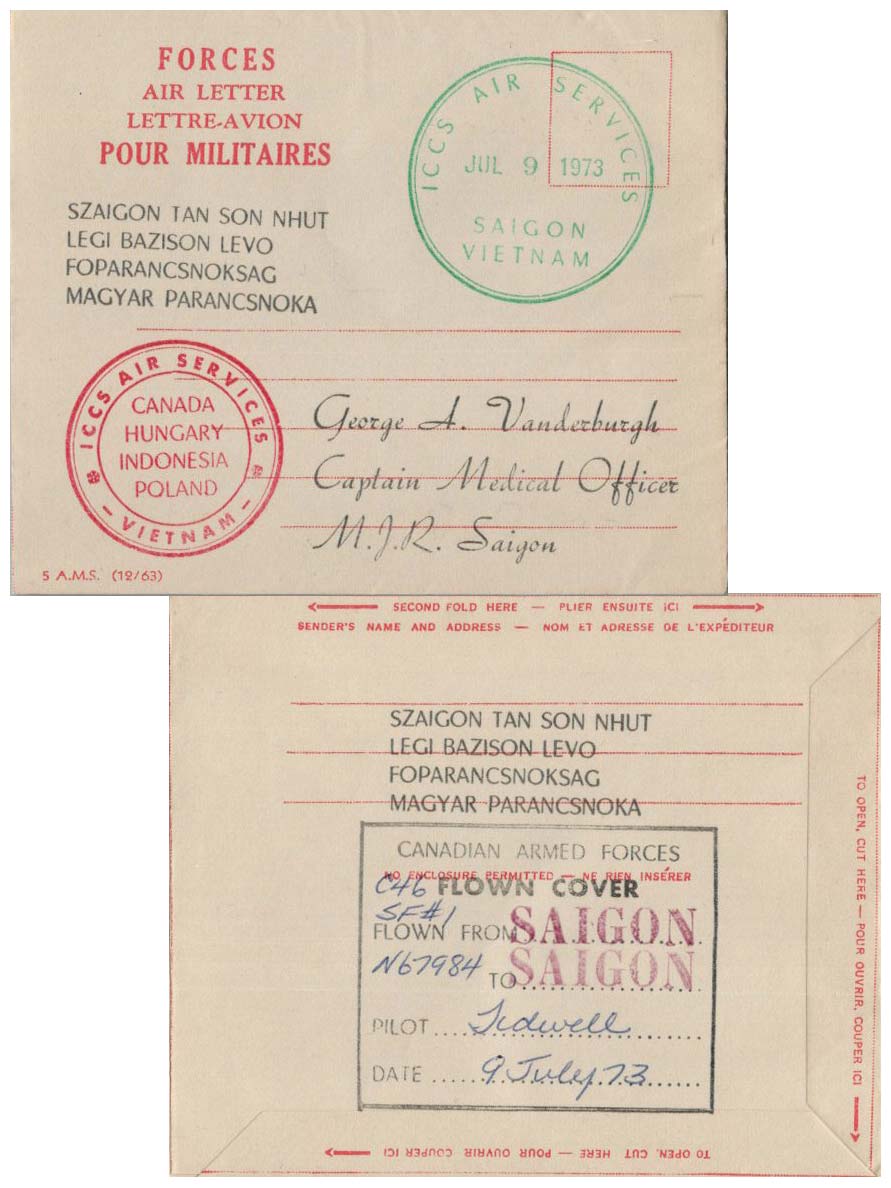 FORCES
AIR LETTER
LETTRE-AVION
POUR MILITAIRES
ICCS AIR SERVICES
JUL 9 1973
SAIGON
VIETNAM
SZAIGON TAN SON NHUT
LEGI BAZISON LEVO
FOPARANCSNOKSAG
MAGYAR PARANCSNOKA
ICCS AIR SERVICES
CANADA
HUNGARY
INDONESIA
POLAND
— VIETNAM —
George A. Vanderburgh
Captain Medical Officer
M.J.R. Saigon
5 A.M.S. (12/63)
SECOND FOLD HERE — PLIER ENSUITE ICI
SENDER'S NAME AND ADDRESS — NOM ET ADRESSE DE L'EXPÉDITEUR
SZAIGON TAN SON NHUT
LEGI BAZISON LEVO
FOPARANCSNOKSAG
MAGYAR PARANCSNOKA
CANADIAN ARMED FORCES
NO ENCLOSURE PERMITTED — NE RIEN INSÉRER
C46 FLOWN COVER
SF#1
FLOWN FROM SAIGON
N67984 TO SAIGON
PILOT.... Tidwell
DATE ...... 9 July 73
TO OPEN, CUT HERE — POUR OUVRIR, COUPER ICI
TO OPEN, CUT HERE — POUR OUVRIR COUPER ICI